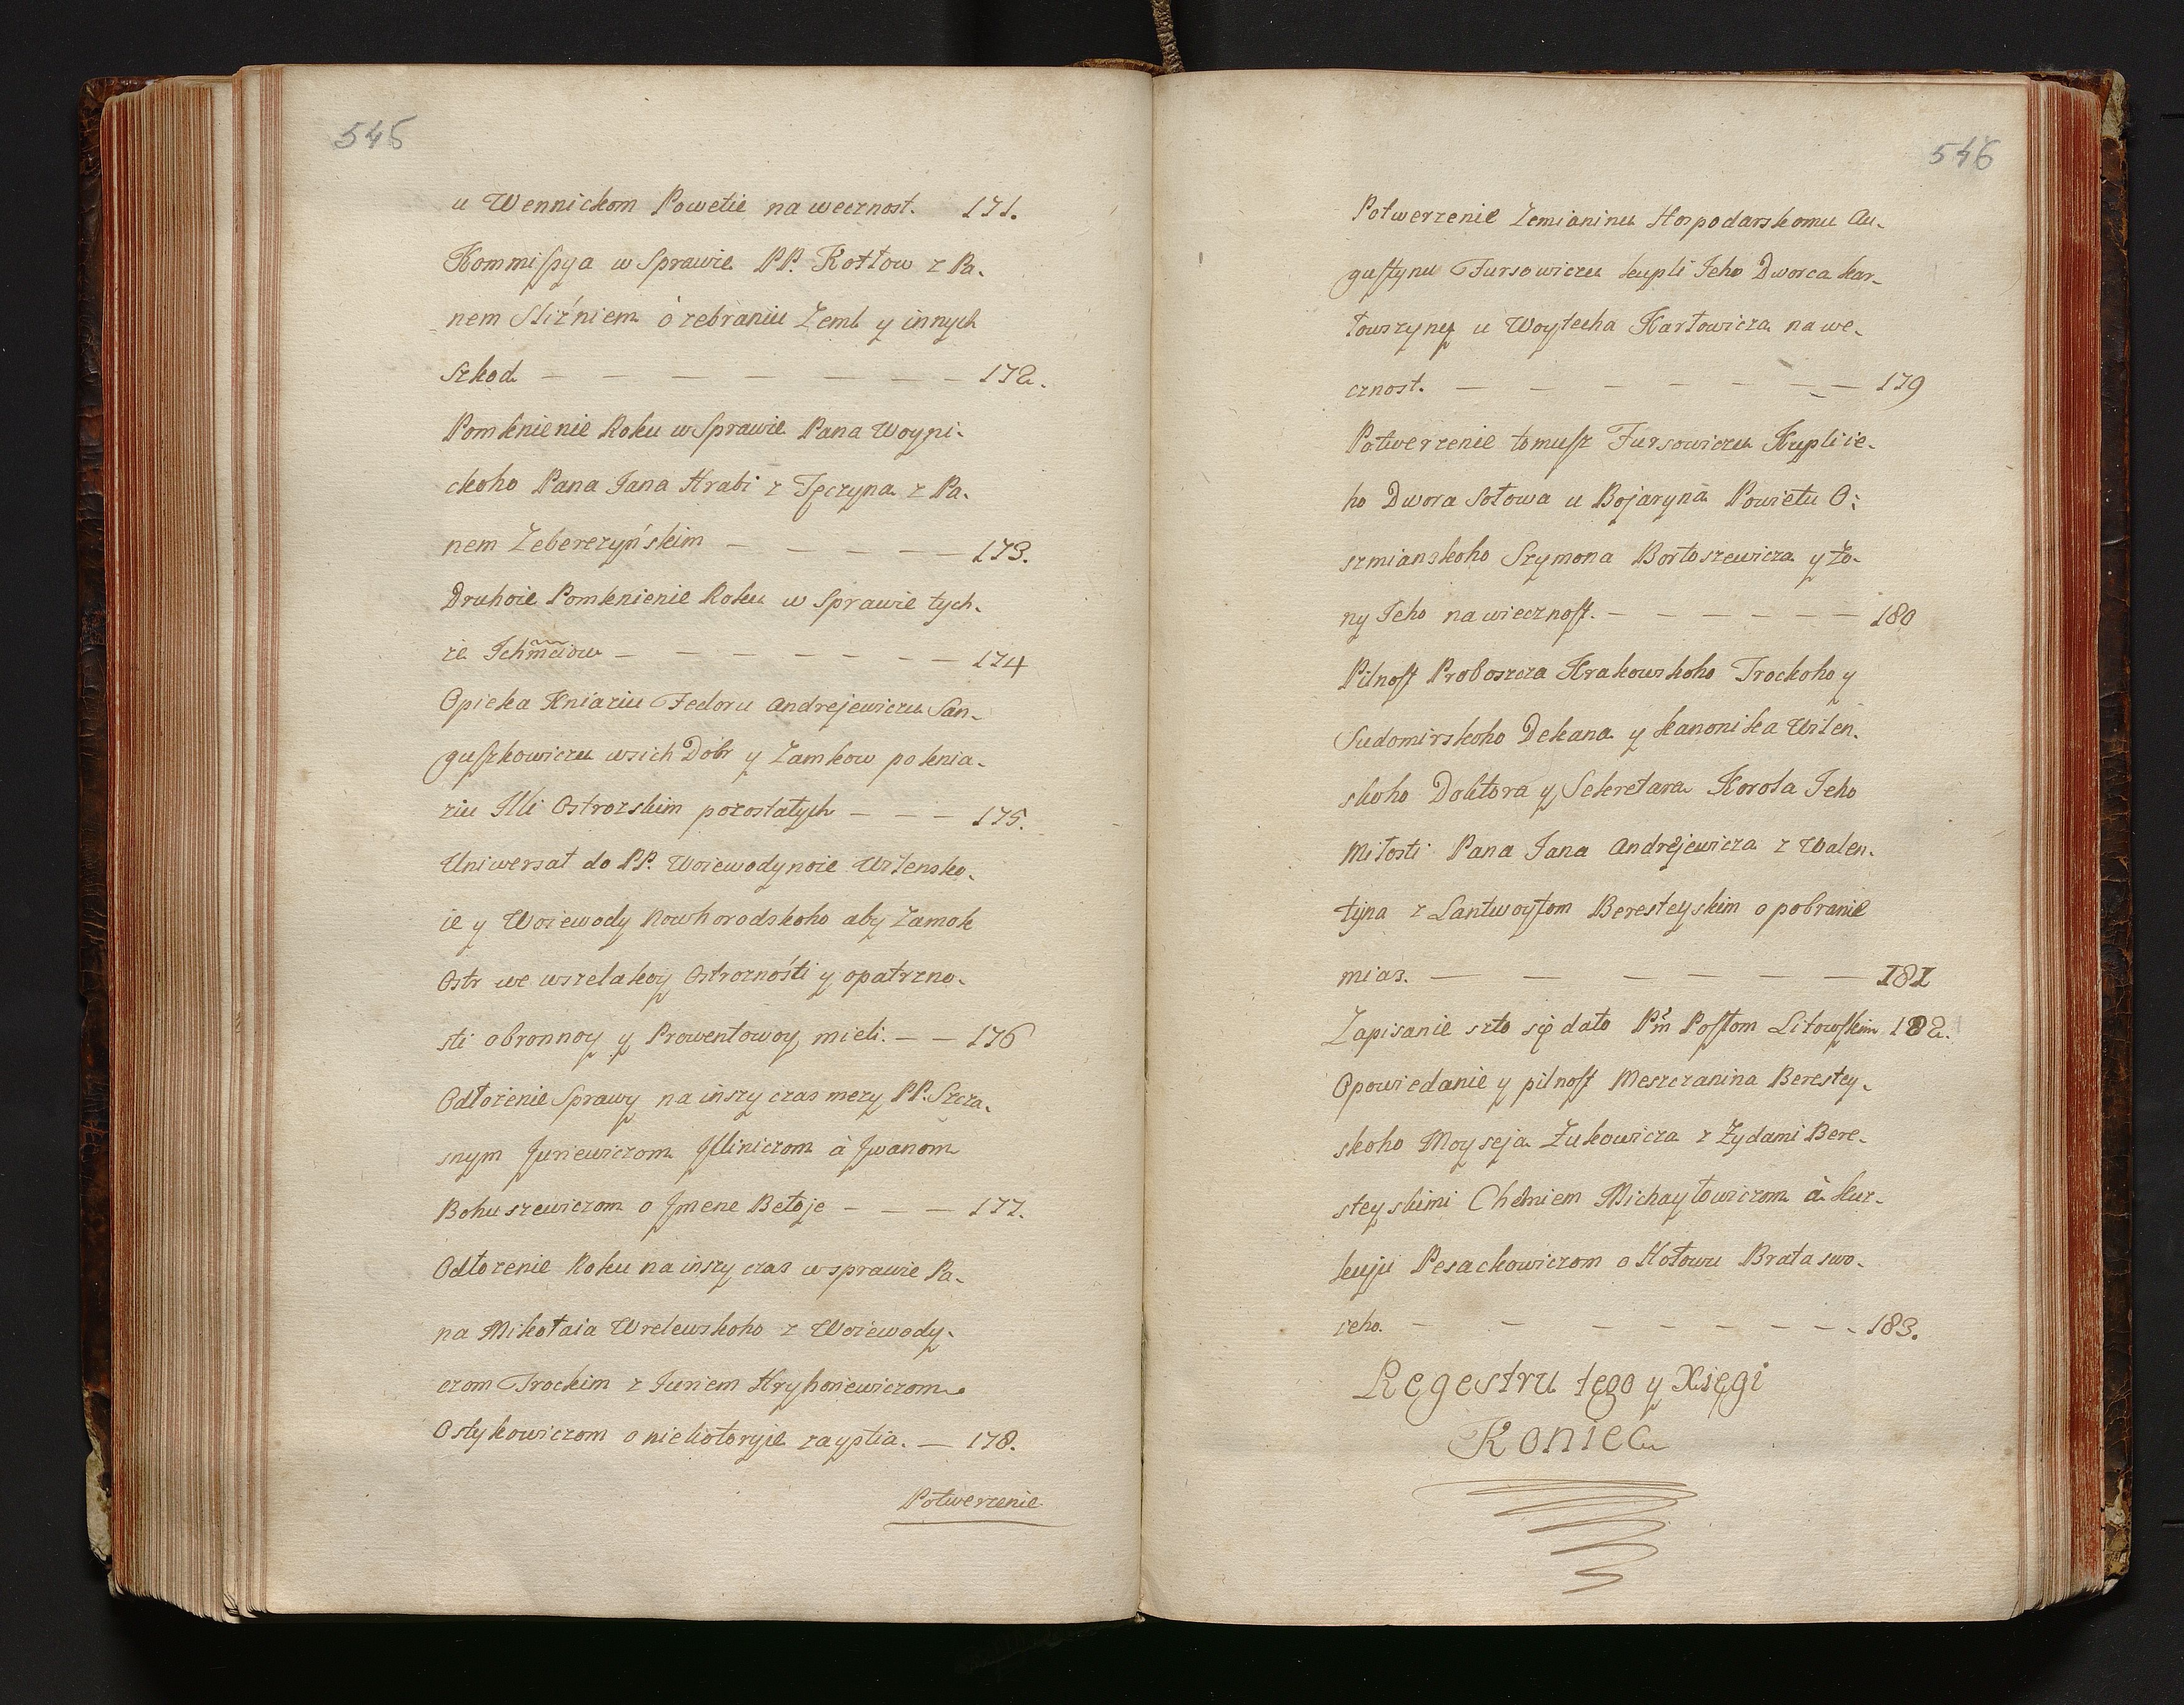 545
u Wennickom Powetie na weeznost. 171.
Kommissya w Sprawie PP. Kotłow z Pa-
nem Sliźniem ò zebraniu Zeml y innych
Szkod — — — — — — — — 172.
Pomknienie Roku w Sprawie Pana Woyni-
ckoho Pana Jana Hrabi z Tęczyna z Pa-
nem Zeberezyńskim — — — — — 173.
Druhoie Pomknienie Roku w Sprawie tych-
ze Ichmciow — — — — — — — — 174
Opieka Kniaziu Fedoru Andrejewiczu San-
guszkowiczu wsich Dobr y Zamkow po knia-
ziu Illi Ostrozskim pozostałych — — — 175.
Uniwersał do PP. Woiewodynoie Wilensko-
ie y Woiewody Nowhorodskoho aby Zamok
Ostr we wszelakoy Ostroznośti y opatrzno-
sti obronnoy y Prowentowoy mieli. — — 176
Odłożenie Sprawy na inszy czas mezy PP. Szcza-
snym Juriewiczom Illiniczom à Jwanom
Bohuszewiczom o Jmene Bełoje — — — 177.
Odłozenie Roku na inszy czas w sprawie Pa-
na Mikołaia Wrelewskoho z Woiewody-
czom Trockim z Juriem Hryhoriewiczom
Ostykowiczom o niekotoryie zayştia. — 178.
Potwerzenie
546
Potwerzenie Zemianinu Hospodarskomu Au-
gustynu Fursowiczu kupli Jeho Dworca Kar-
towszyny u Woytecha Kartowicza na we-
cznost. — — — — — — — — 179
Potwerzenie tomusz Fursowiczu Kupli ie-
ho Dwora Sołowa u Bojaryna Powietu O-
szmianskoho Szymona Bortoszewicza y Żo-
ny Jeho na wiecznost. — — — — — — 180
Pilnost Proboszcza Krakowskoho Trockoho y
Sudomirskoho Dekana y kanonika Wilen-
skoho Doktora y Sekretara Korola Jeho
Miłosti Pana Jana Andrejewicza z Walen-
tyna z Lantwoytom Beresteyskim o pobranie
mias. — — — — — — 181
Zapisanie szto się dało Pm̃ Posłom Litowskim 182.
Opowiedanie y pilnost Meszczanina Berestey-
skoho Moyseja Zukowicza z Zydami Bere-
steyskimi Chełmiem Michayłowiczom à Kur-
kuju Pesackowiczom o Hołowu Brata swo-
ieho. — — — — — — — — 183.
Regestru tego y Xsięgi
Koniec